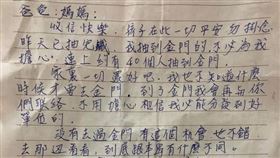 爸爸、媽媽：
收信快樂，孩子在此一切平安勿掛念
昨天已抽完籤，我抽到金門的，不必為我
擔心，連上到有40個人抽到金門。
家裏一切還好吧，我也不知道什麼
時候才會去金門，到了金門我會再與你
們聯絡，不用擔心，相信我必能分發到好
單位的。
沒有去過金門，有這個機會也不錯，
去那邊看看，到底跟本島有什麼不同。